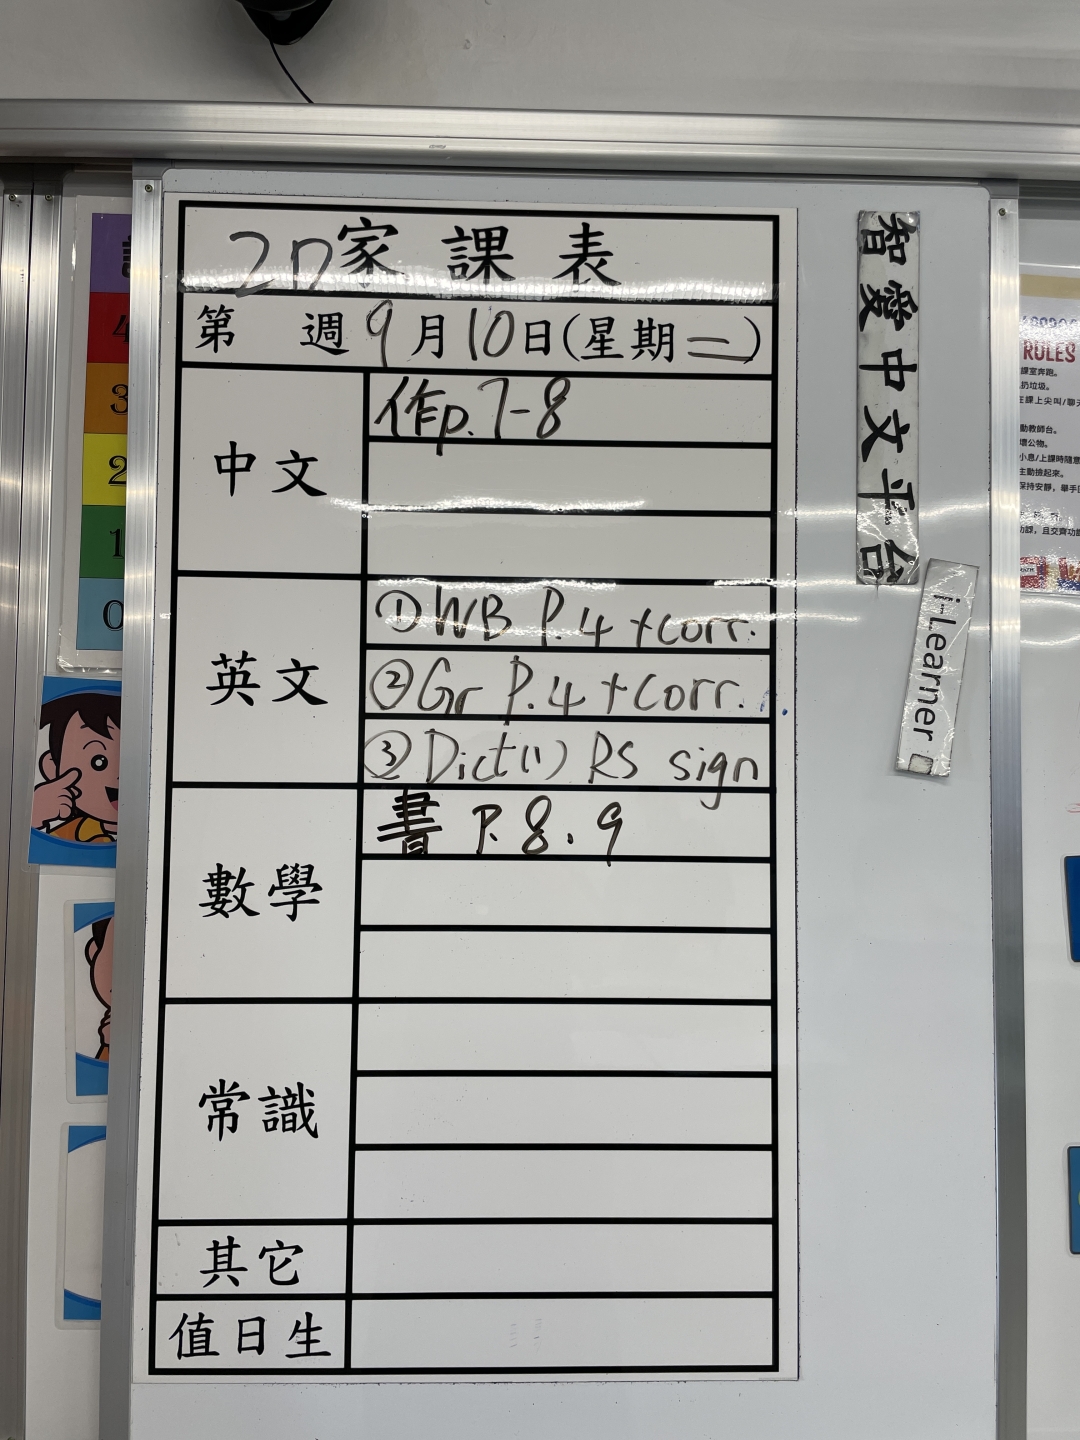 2D家課表
第 週 9月10日(星期二)
中文
作p.7-8
英文
①WB P.4 +corr.
②Gr P.4 +corr.
③Dict(1) RS sign
數學
書 P.8.9
常識
其它
值日生
智愛中文平台
i-Learner
4
3
2
1
0
RULES
課室奔跑。
扔垃圾。
在課上尖叫/聊天
動教師台。
壞公物。
小息/上課時隨意
主動撿起來。
保持安靜，舉手
功課，且交齊功課